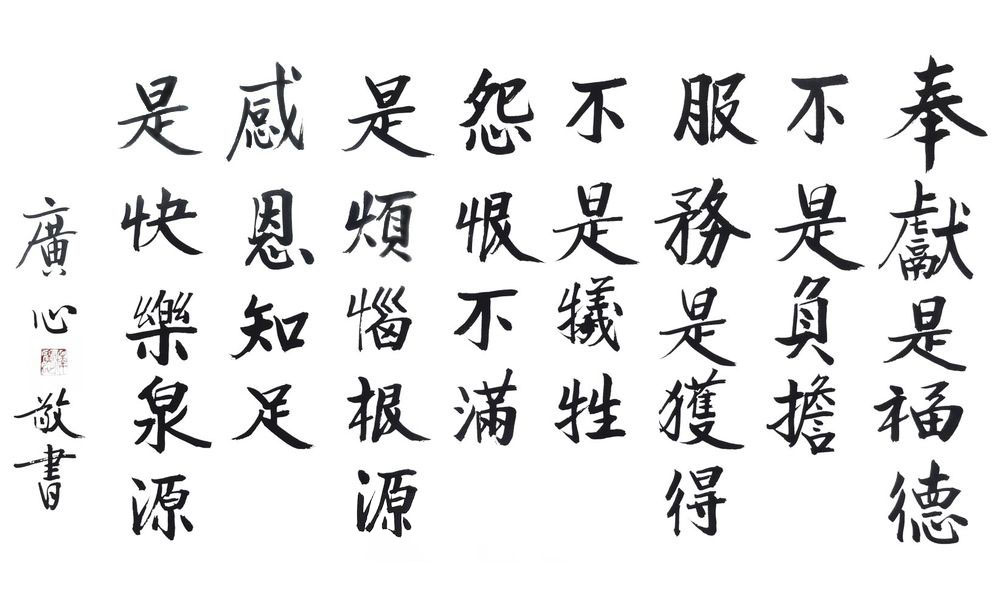 奉獻是福德
不是負擔
服務是獲得
不是犧牲
怨恨不滿
是煩惱根源
感恩知足
是快樂泉源
廣心敬書